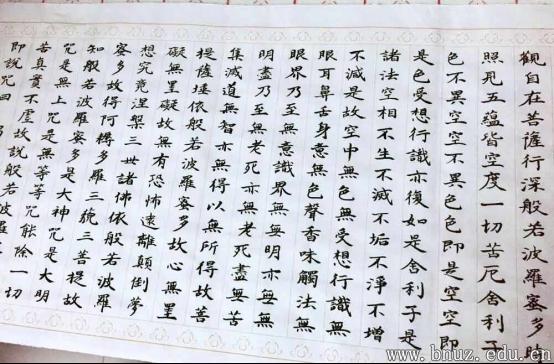 觀自在菩薩行深般若波羅蜜多時
照見五蘊皆空度一切苦厄舍利子
色不異空空不異色色即是空空即
是色受想行識亦復如是舍利子是
諸法空相不生不滅不垢不淨不增
不減是故空中無色無受想行識無
眼耳鼻舌身意無色聲香味觸法無
眼界乃至無意識界無無明亦無無
明盡乃至無老死亦無老死盡無苦
集滅道無智亦無得以無所得故菩
提薩埵依般若波羅蜜多故心無罣
礙無罣礙故無有恐怖遠離顛倒夢
想究竟涅槃三世諸佛依般若波羅
蜜多故得阿耨多羅三藐三菩提故
知般若波羅蜜多是大神咒是大明
咒是無上咒是無等等咒能除一切
苦真實不虛故說般若波羅
即說咒曰
www.bnuz.edu.cn